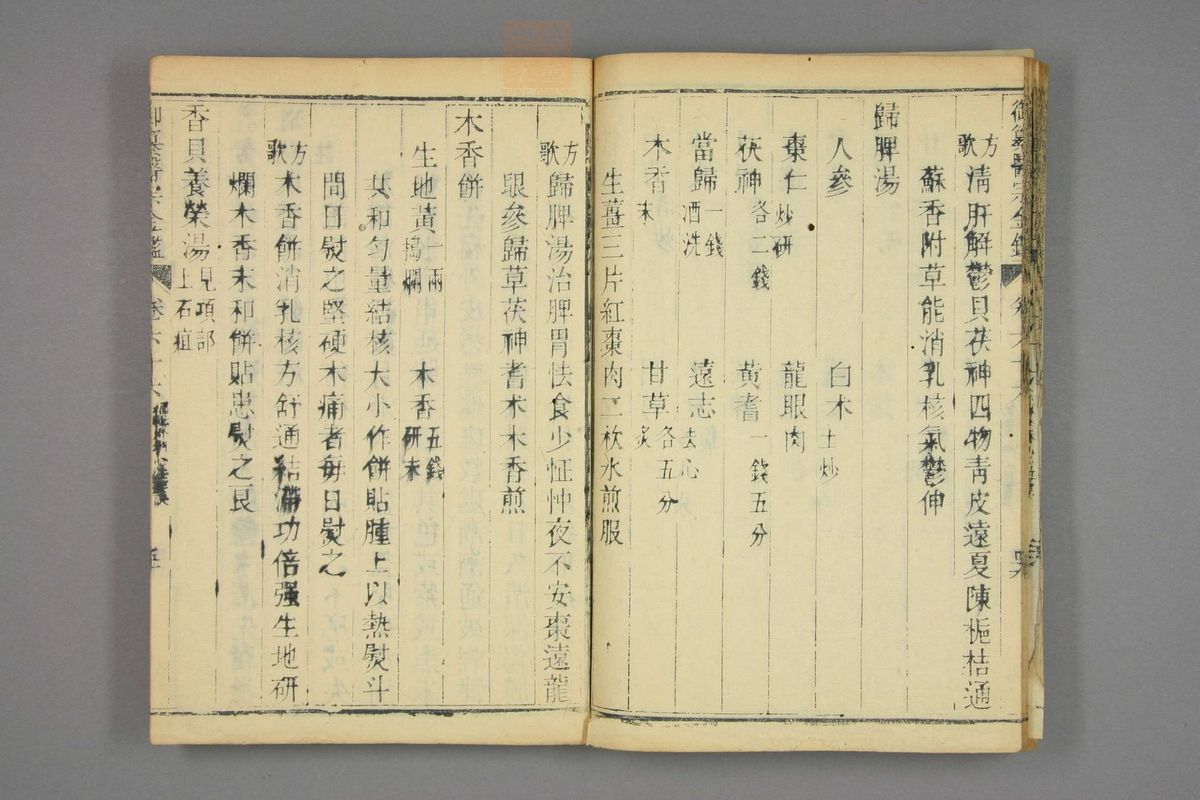 御纂醫宗金鑑
方歌 清肝解鬱貝茯神四物青皮遠夏陳梔桔通
蘇香附草能消乳核氣鬱伸
歸脾湯
人參 白木土炒
棗仁炒研 龍眼肉
茯神各二錢 黃耆一錢五分
當歸一錢酒洗 遠志去心
木香末 甘草各五分炙
生薑三片紅棗肉二枚水煎服
方歌 歸脾湯治脾胃怯食少怔忡夜不安棗遠龍
眼參歸草茯神耆木木香煎
木香餅
生地黃一兩搗爛 木香五錢研末
共和勻量結核大小作餅貼腫上以熱熨斗
間日熨之堅硬木痛者每日熨之
方歌 木香餅消乳核方舒通結滯功倍強生地研
爛木香末和餅貼患熨之良
香貝養榮湯見項部上石疽
御纂醫宗金鑑 卷六十六